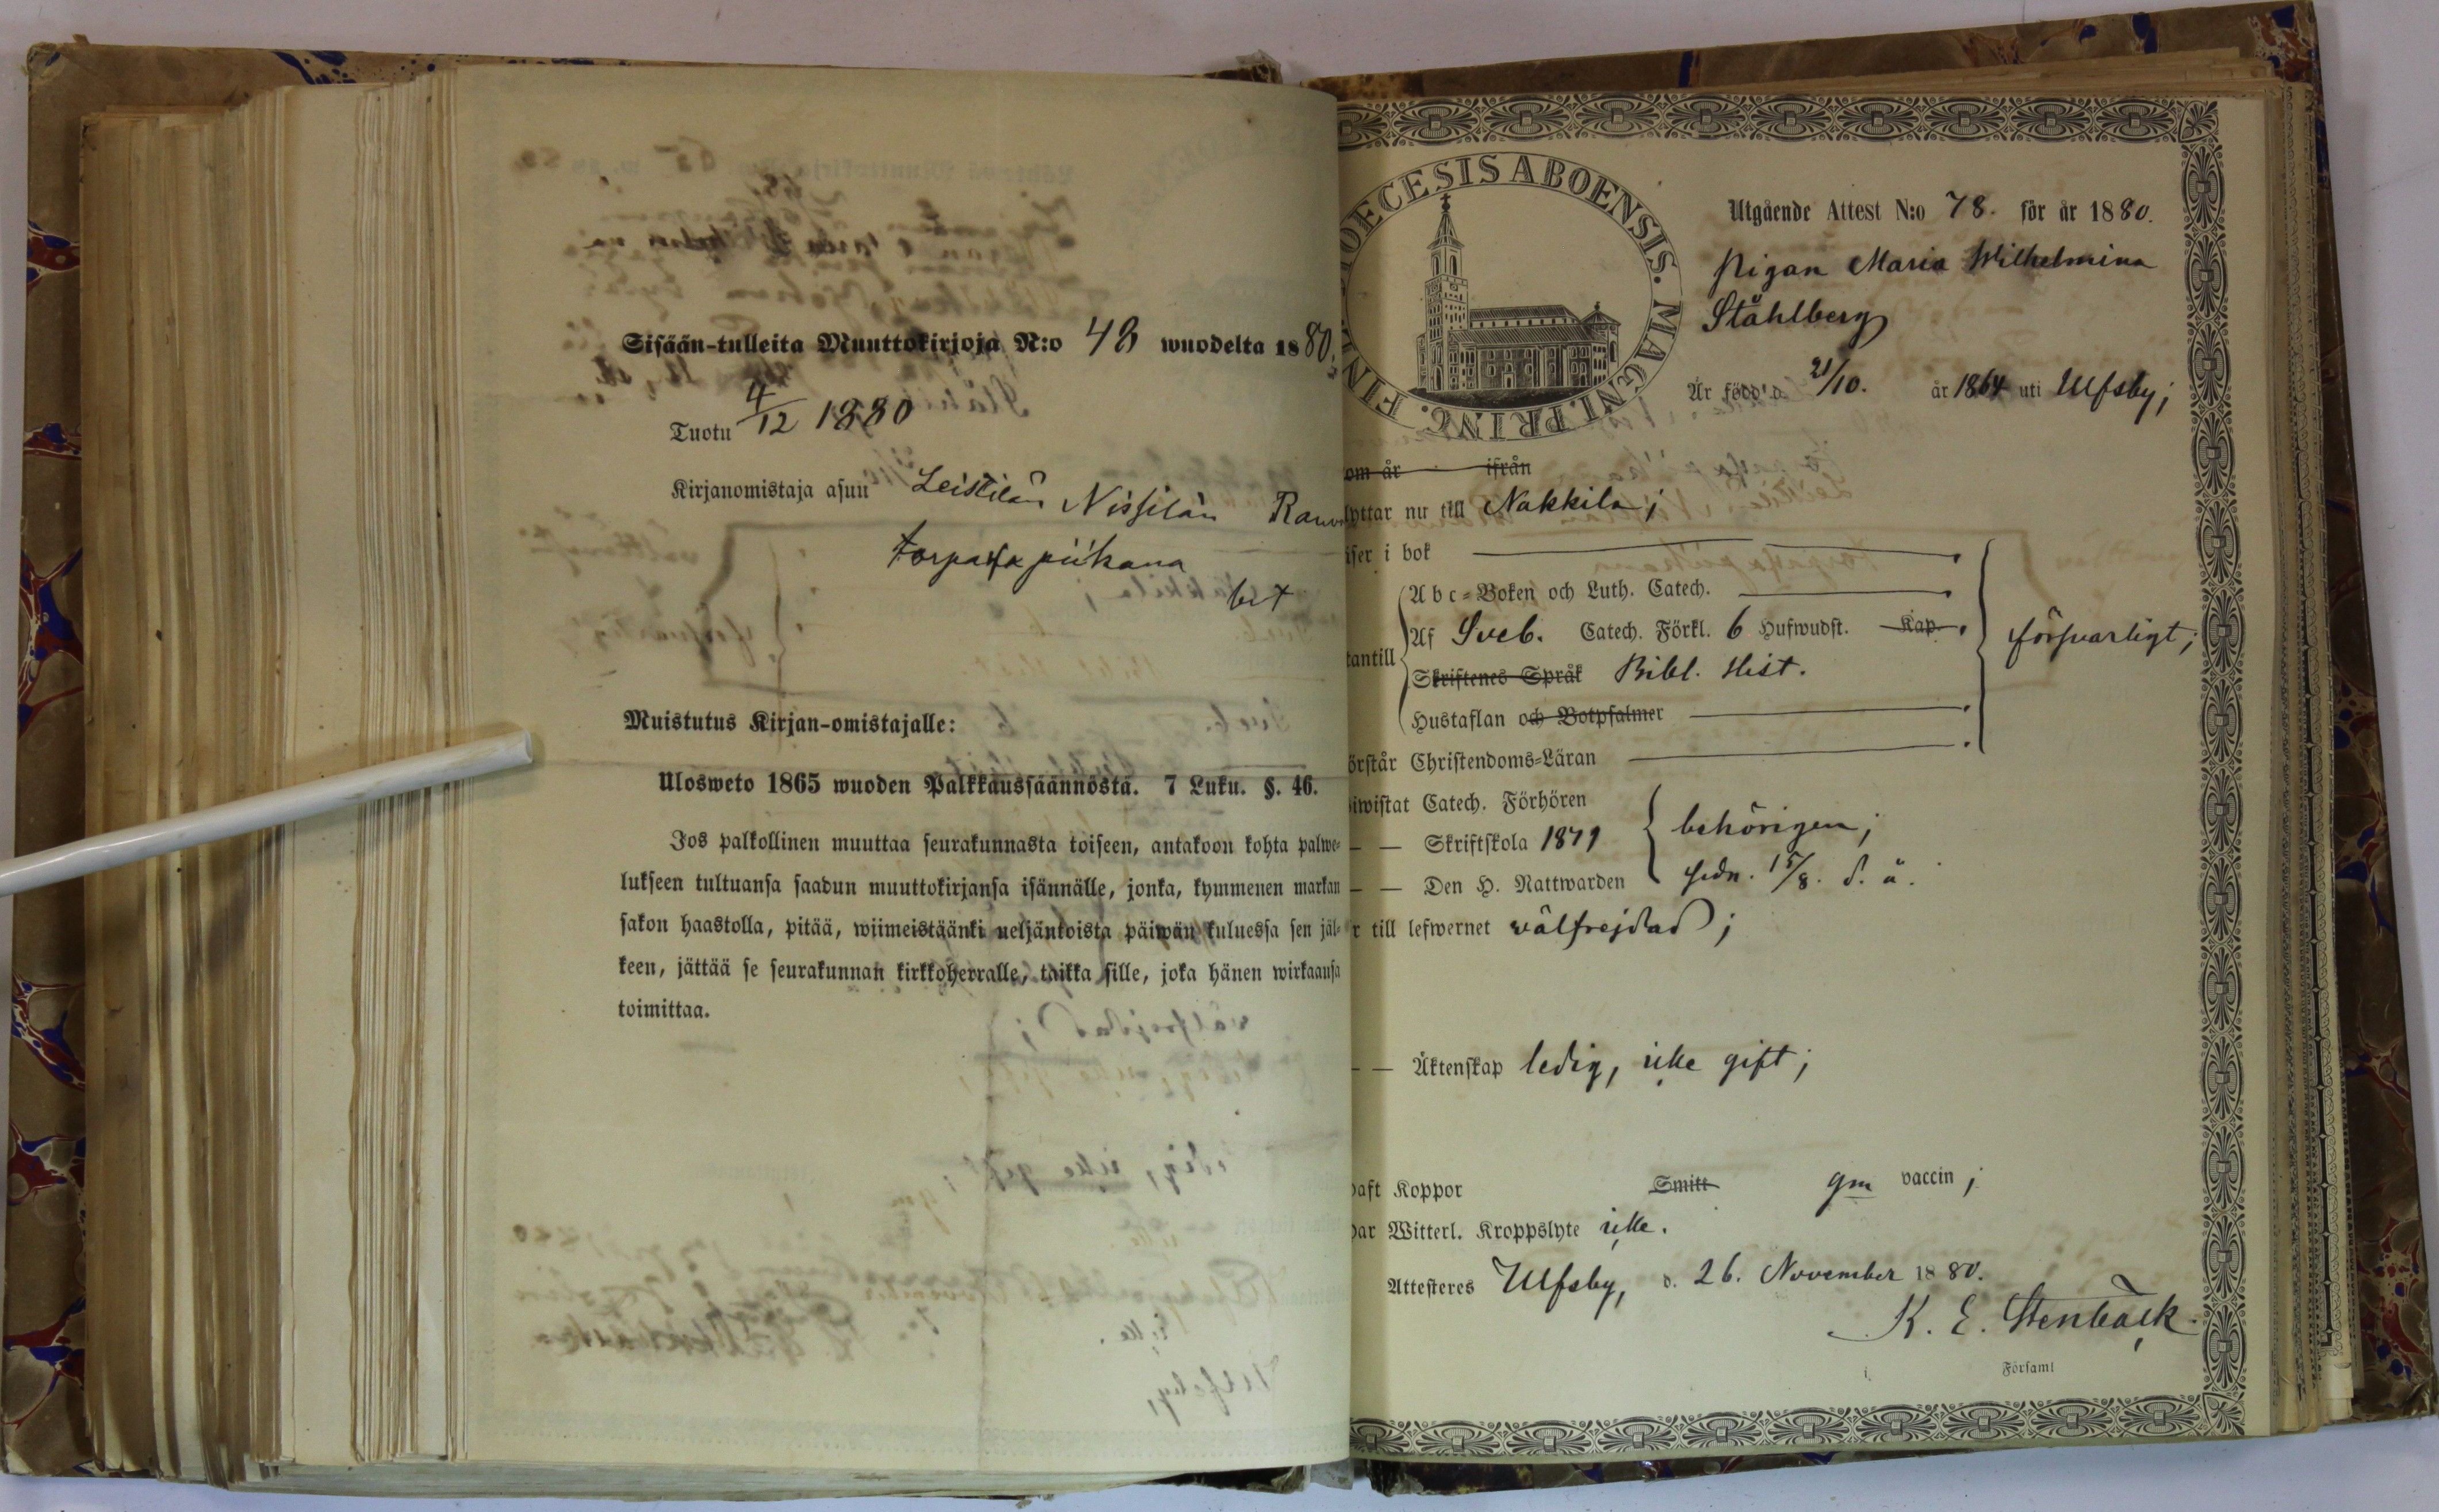 Sisään-tulleita Muuttokirjoja N:o 48 wuodelta 1880.
Tuotu 4/12 1880
Kirjanomistaja asuu Leistilän Nissilän
torpassa piikana
Muistutus Kirjan-omistajalle:
Ulosweto 1865 wuoden Palkkaussäännöstä. 7 Luku. §. 46.
Jos palkollinen muuttaa seurakunnasta toiseen, antakoon kohta palwe-
lukseen tultuansa saadun muuttokirjansa isännälle, jonka, kymmenen markan
sakon haastolla, pitää, wiimeistäänki neljäntoista päiwän kuluessa sen jäl-
keen, jättää se seurakunnan kirkkoherralle, taikka sille, joka hänen wirkaansa
toimittaa.
DIOECESIS ABOENSIS. MAGNI PRINC. FINL
Utgående Attest N:o 78. för år 1880.
Pigan Maria Wilhelmina
Ståhlberg
Är född d. 21/10. år 1864 uti Ulfsby;
om år ifrån
lyttar nu till Nakkila;
iser i bok
Abc-Boken och Luth. Catech.
Af Sveb. Catech. Förkl. 6 Hufwudst. Kap.
tantill
Skriftenes Språk Bibl. Hist.
försvarligt;
Hustaflan och Botpsalmer
örstår Christendoms-Läran
iwistat Catech. Förhören
— — Skriftskola 1879 behörigen;
— — Den H. Nattwarden sedn. 15/8. d. å.
r till lefwernet välfrejdad;
— — Äktenskap ledig, icke gift;
haft Koppor Smitt gm vaccin;
har Witterl. Kroppslyte icke.
Attesteres Ulfsby, d. 26. November 1880.
K. E. Stenbäck.
i Församl